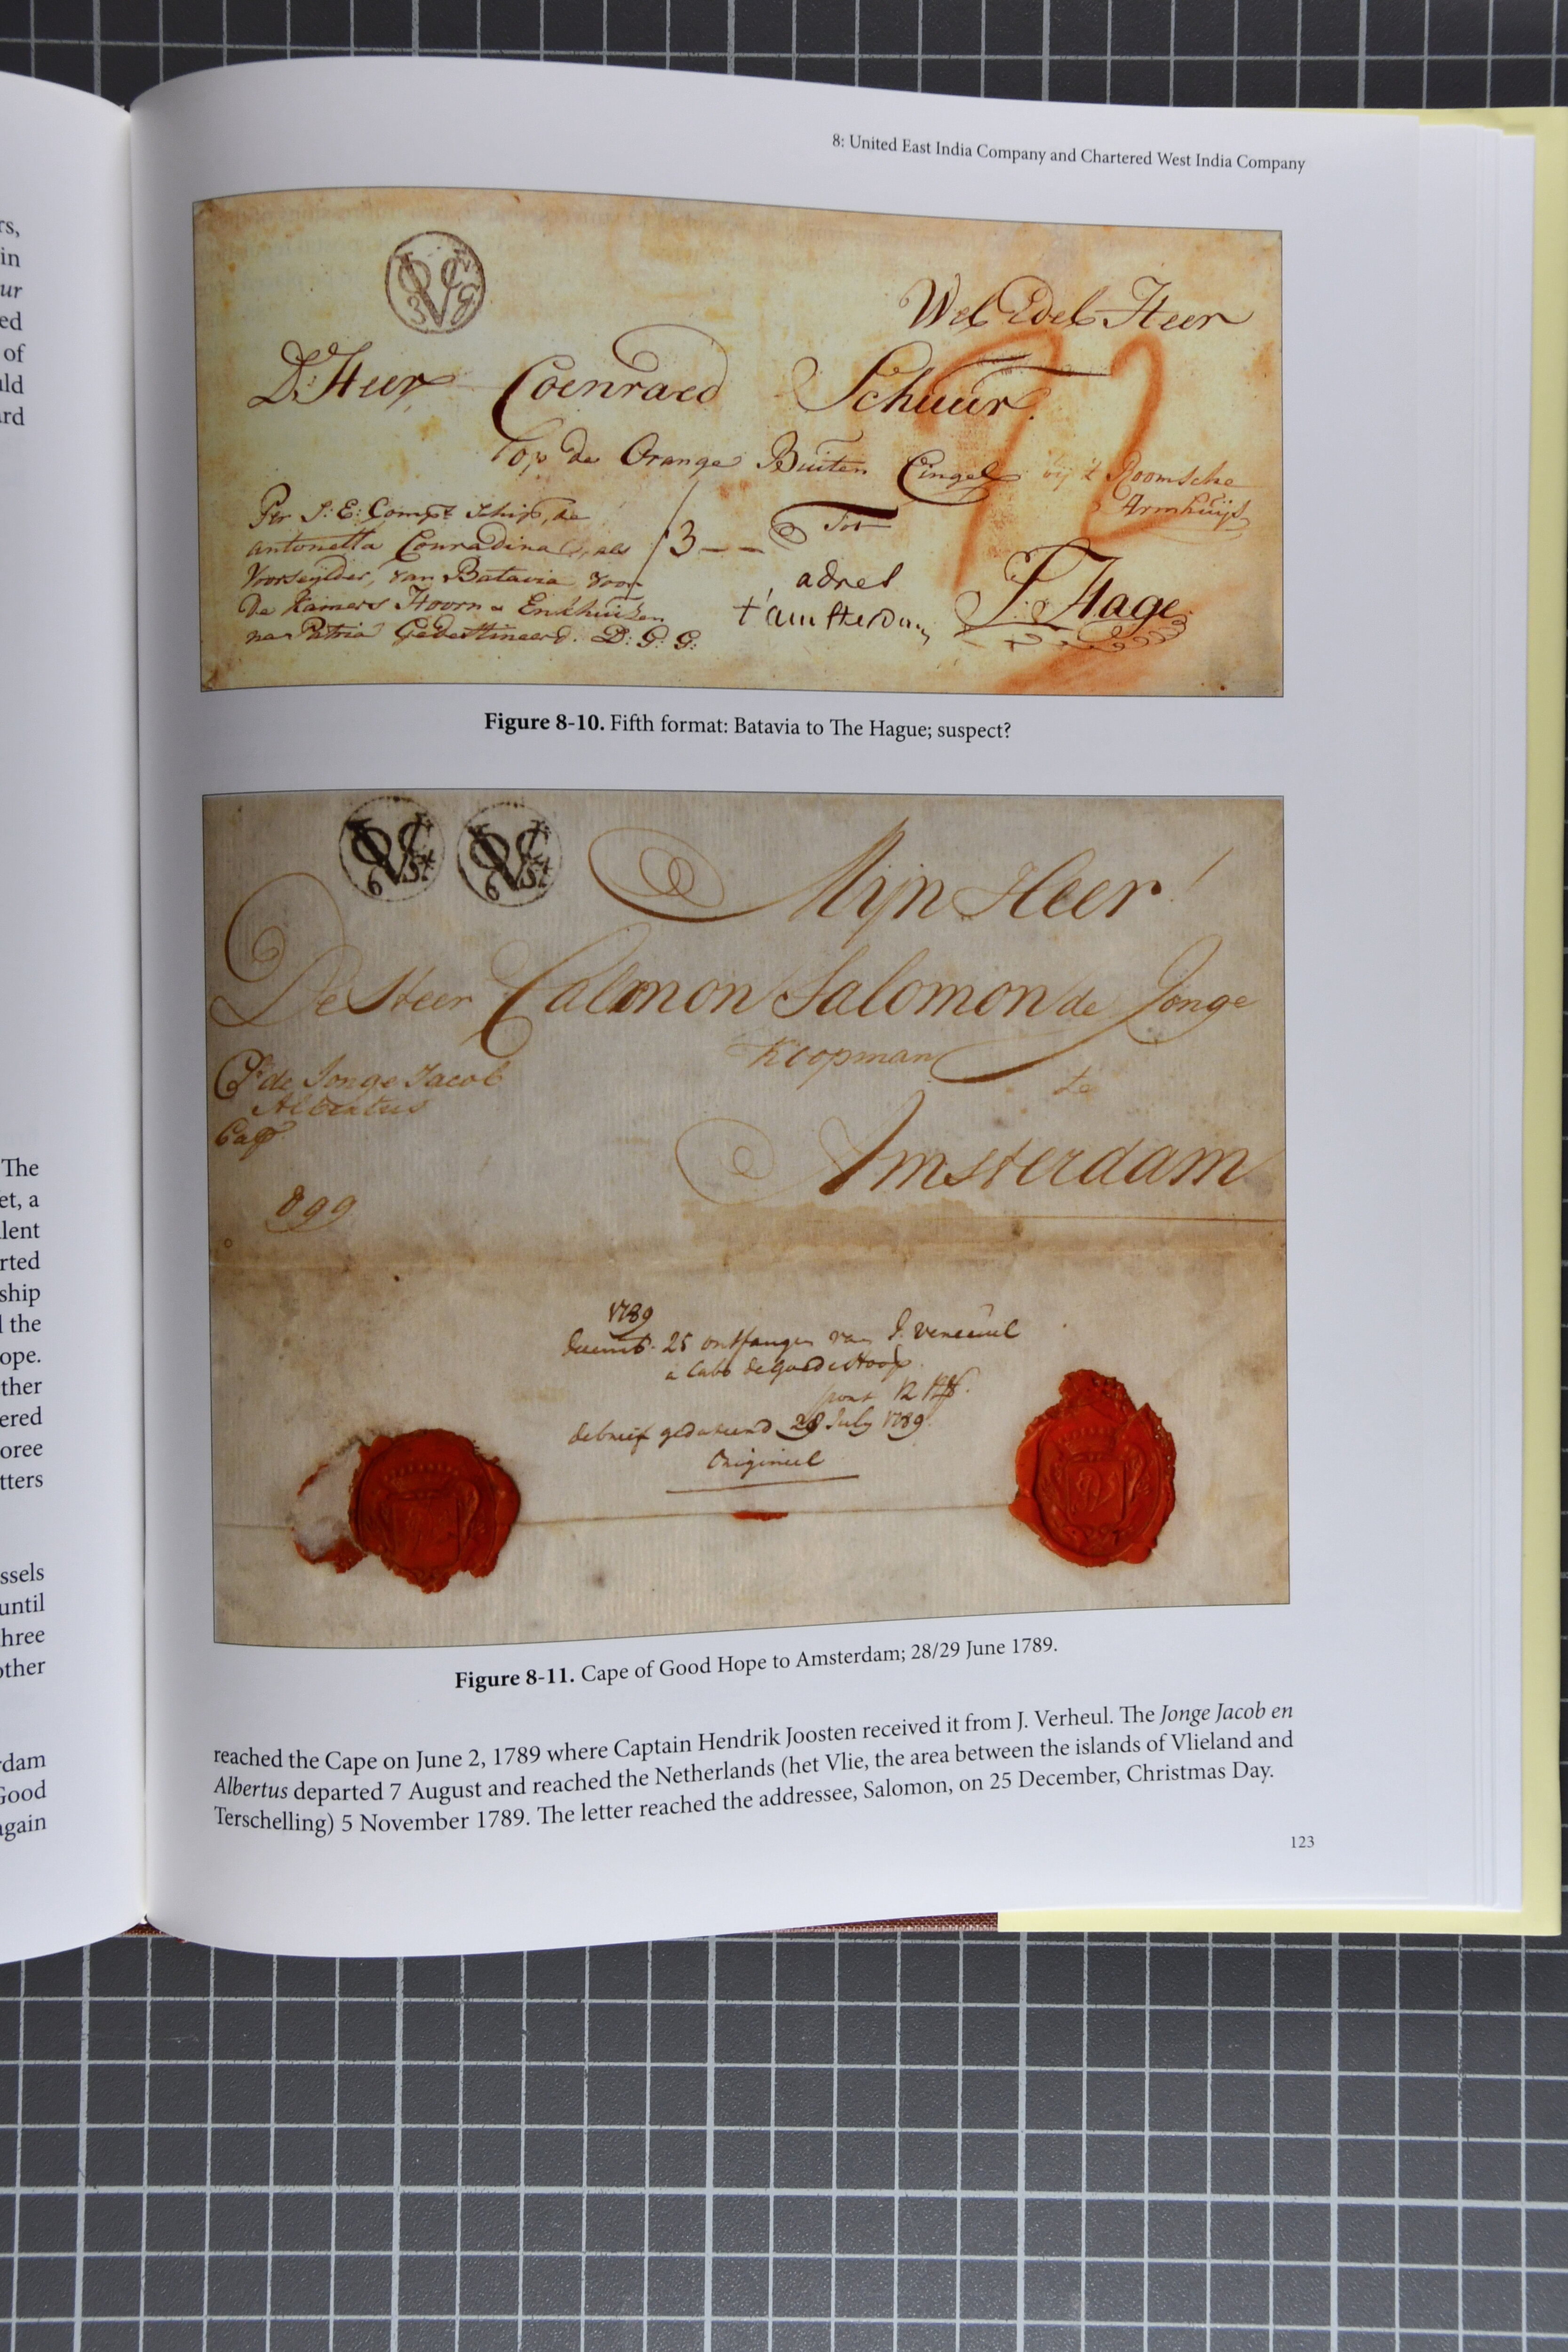 8: United East India Company and Chartered West India Company
VOC
3 G
Wel Edel Heer
D: Heer Coenraed Schuur.
op de Orange Buiten Cingel bij 't Roomsche
Armhuijs
Per S: E: Compt Schip, de
Antonetta Conradina als
Voorseijlder, van Batavia voor
De Kamers Hoorn & Enkhuizen
na Patria Gedestineerd. D: G: G:
3
Tot
adres
t'amsterdam
S: Hage
Figure 8-10. Fifth format: Batavia to The Hague; suspect?
VOC
6 St
VOC
6 St
Mijn Heer!
De Heer Calmon Salomon de Jonge
Koopman
te
de Jonge Jacob
Albertus
Cap
Amsterdam
899
1789
25 ontfangen van J.
a Cabo de Goede Hoop
12
de brief gedateerd 28 July 1789
Origineel
Figure 8-11. Cape of Good Hope to Amsterdam; 28/29 June 1789.
reached the Cape on June 2, 1789 where Captain Hendrik Joosten received it from J. Verheul. The Jonge Jacob en
Albertus departed 7 August and reached the Netherlands (het Vlie, the area between the islands of Vlieland and
Terschelling) 5 November 1789. The letter reached the addressee, Salomon, on 25 December, Christmas Day.
123
rs,
in
ur
ed
of
uld
ard
The
et, a
lent
rted
ship
the
ope.
ther
ered
oree
tters
ssels
until
hree
other
rdam
Good
again